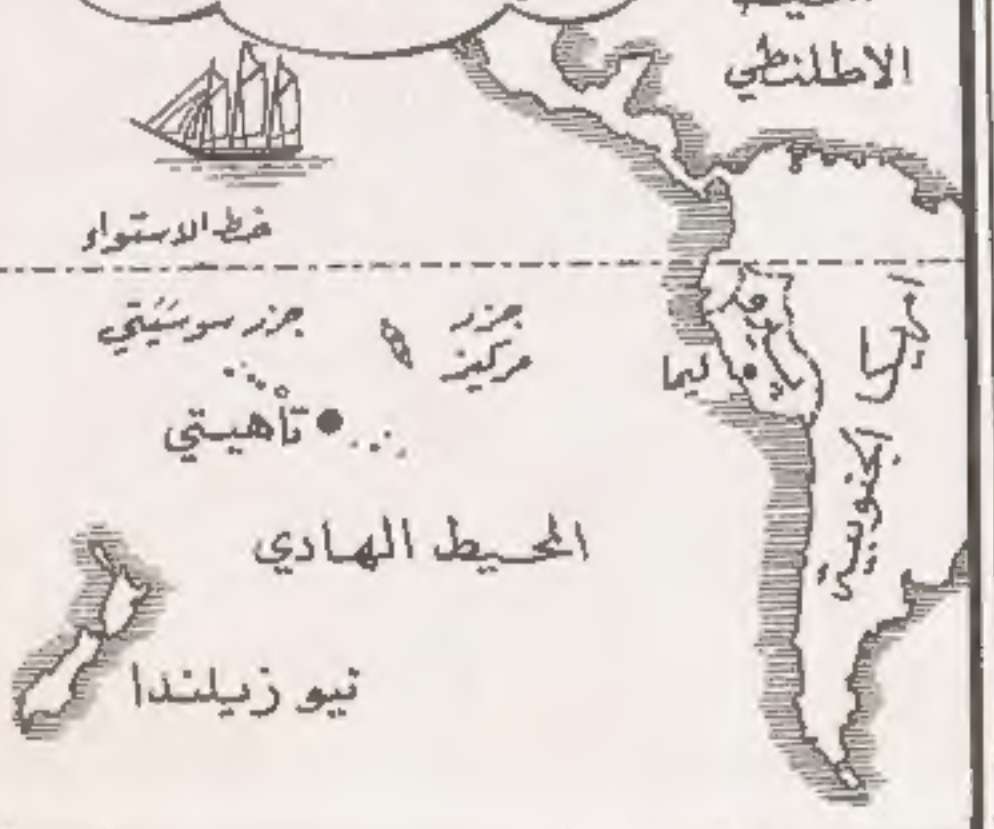 الاطلنطي
خط الاستواء
جزر سوسيتي
جزر
مركيز
تاهيتي
ليما
بيرو
أمريكا
الجنوبية
المحيط الهادي
نيو زيلندا